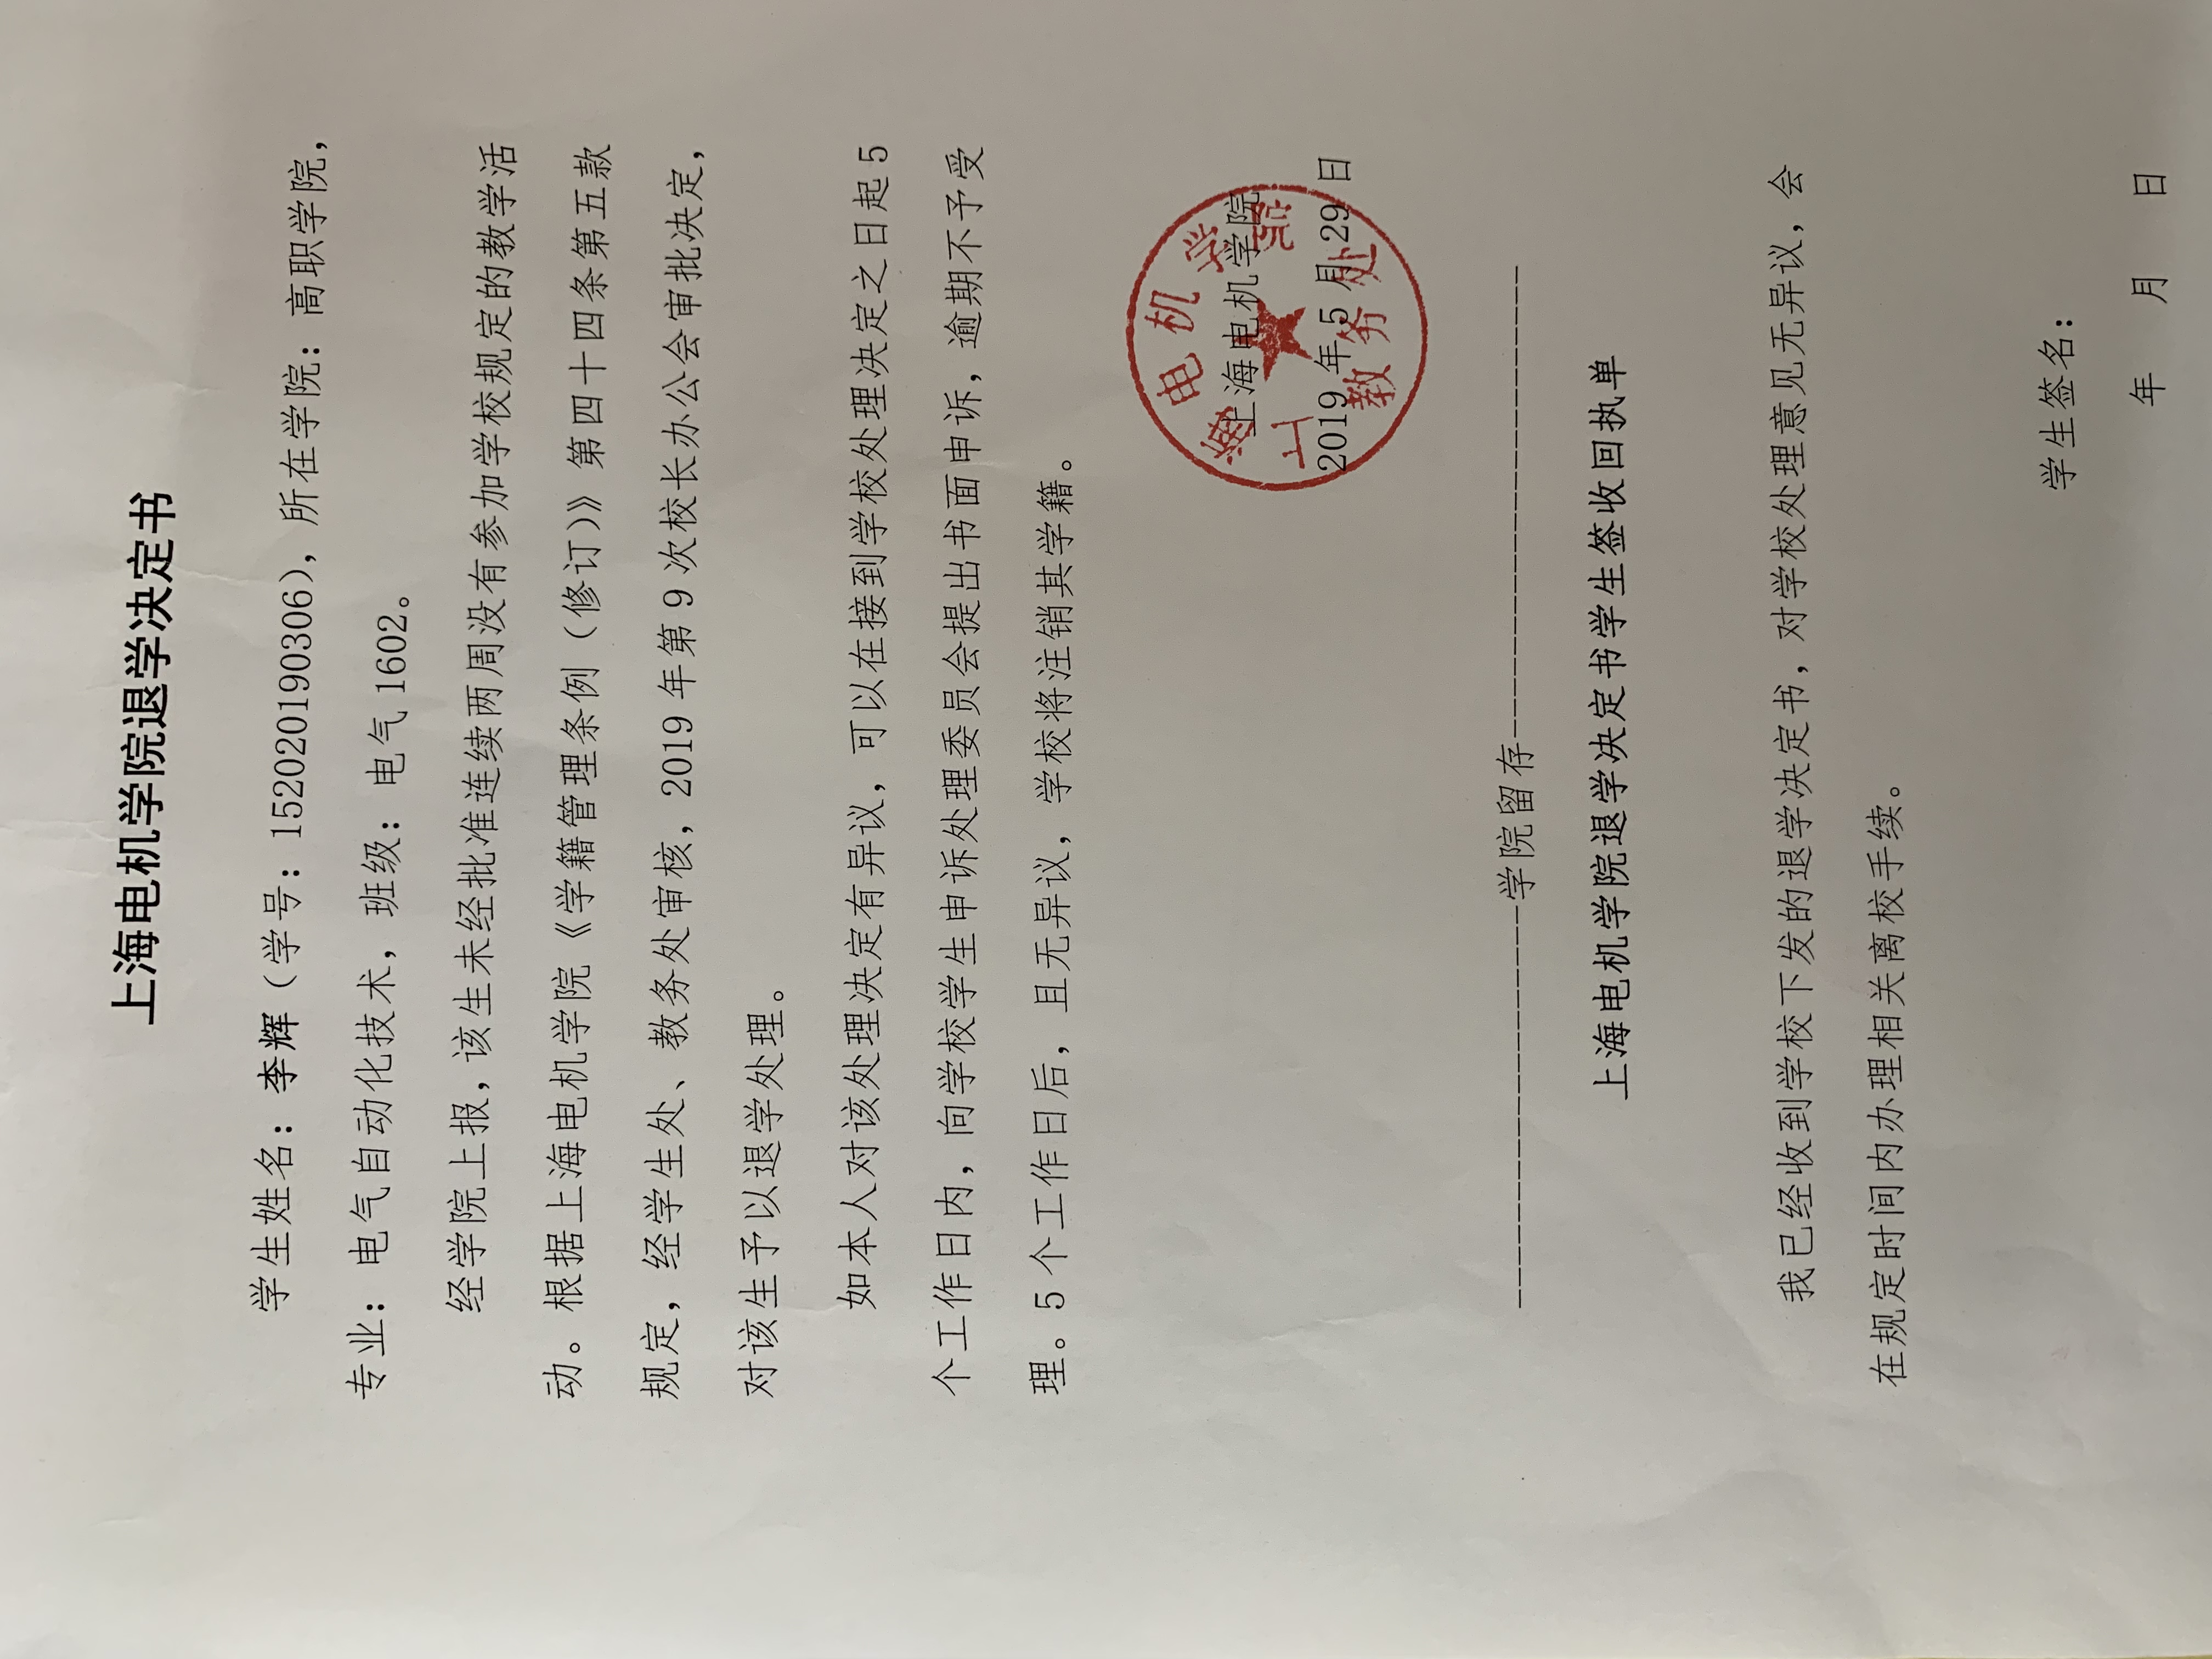 上海电机学院退学决定书
学生姓名：李辉（学号：152020190306），所在学院：高职学院，
专业：电气自动化技术，班级：电气1602。
经学院上报，该生未经批准连续两周没有参加学校规定的教学活
动。根据上海电机学院《学籍管理条例（修订）》第四十四条第五款
规定，经学生处、教务处审核，2019年第9次校长办公会审批决定，
对该生予以退学处理。
如本人对该处理决定有异议，可以在接到学校处理决定之日起5
个工作日内，向学校学生申诉处理委员会提出书面申诉，逾期不予受
理。5个工作日后，且无异议，学校将注销其学籍。
上海电机学院
2019年5月29日
上海电机学院
教务处
------------------------学院留存------------------------
上海电机学院退学决定书学生签收回执单
我已经收到学校下发的退学决定书，对学校处理意见无异议，会
在规定时间内办理相关离校手续。
学生签名：
年 月 日